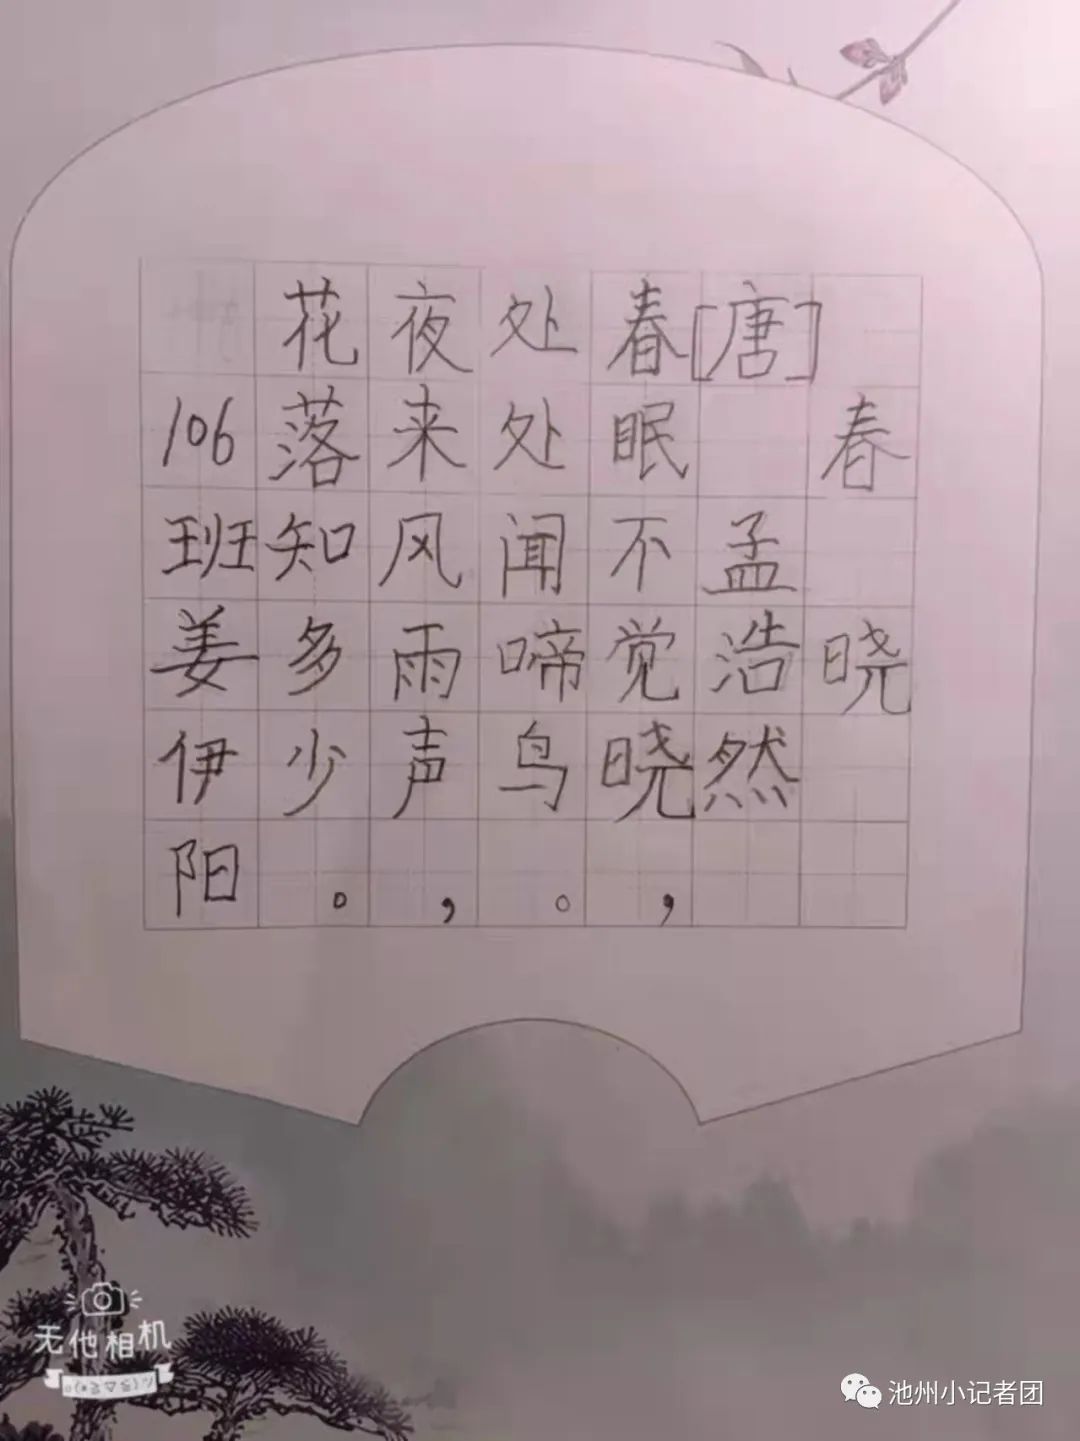 春晓
[唐]孟浩然
春眠不觉晓,
处处闻啼鸟。
夜来风雨声,
花落知多少。
106班姜伊阳
无他相机
池州小记者团